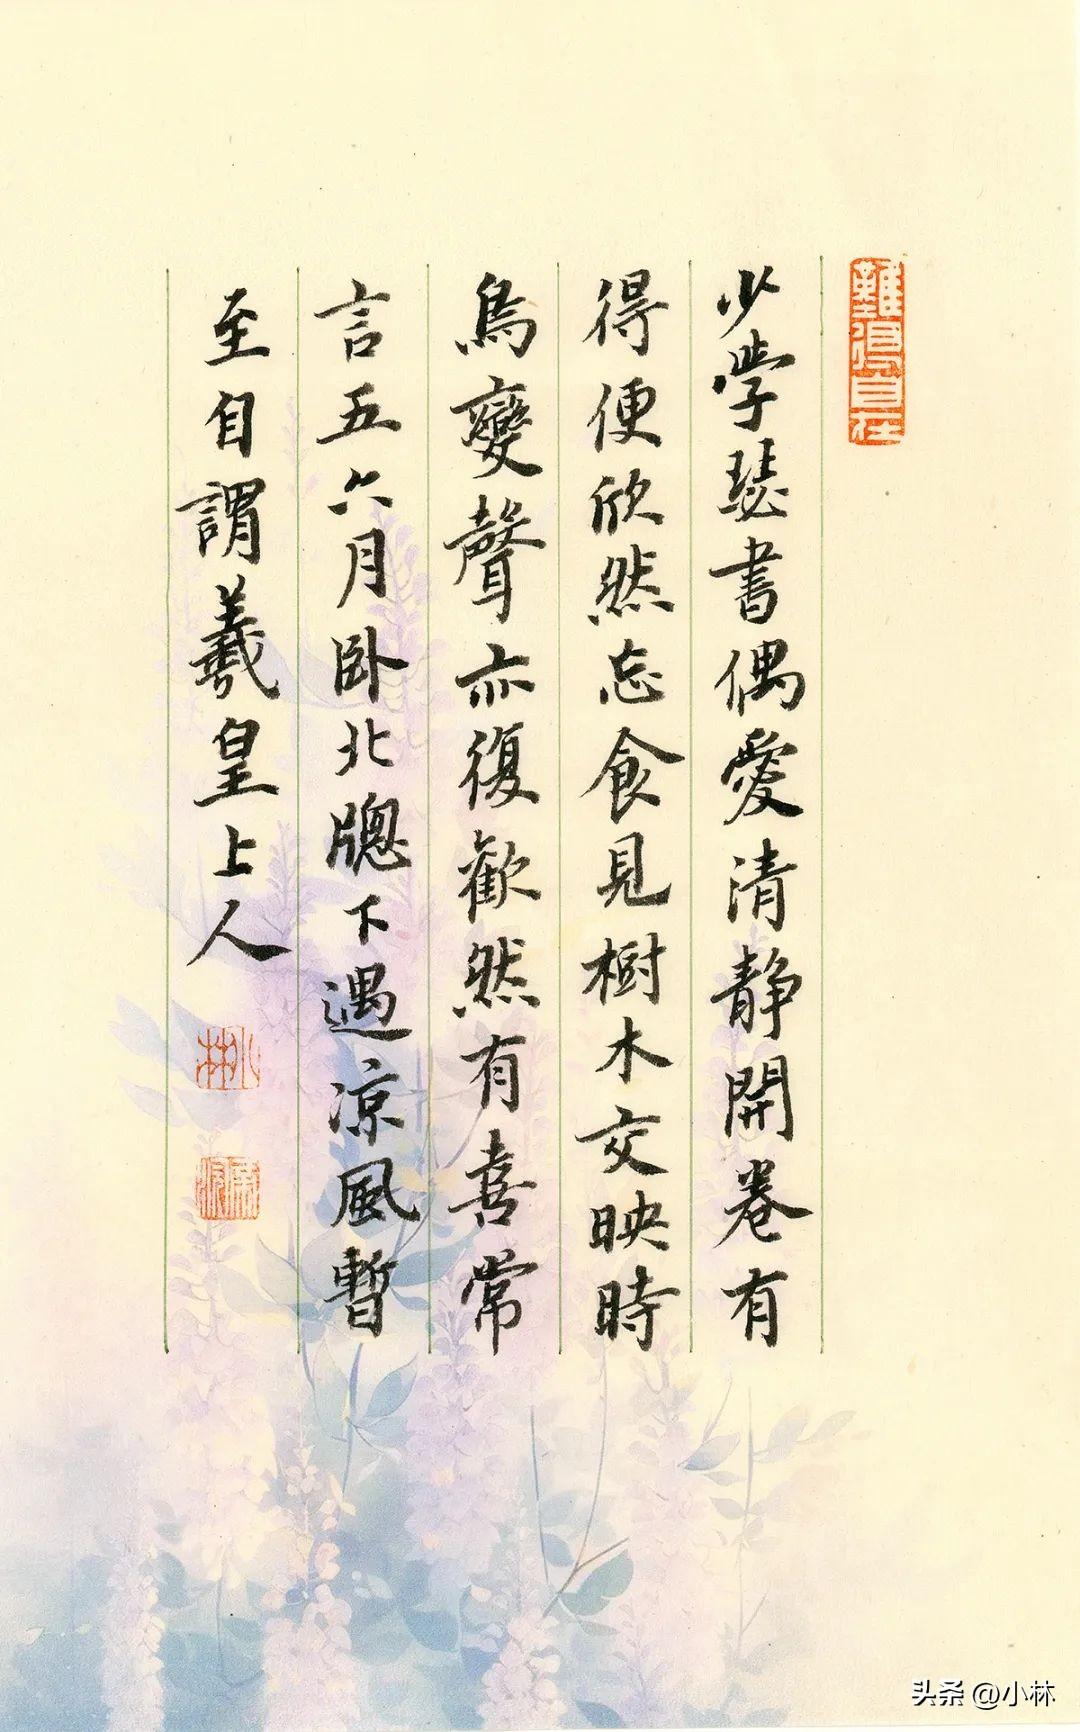 難得自在
少學瑟書偶愛清靜開卷有
得便欣然忘食見樹木交映時
鳥變聲亦復歡然有喜常
言五六月卧北牕下遇涼風暫
至自謂羲皇上人
小林
头条 @小林